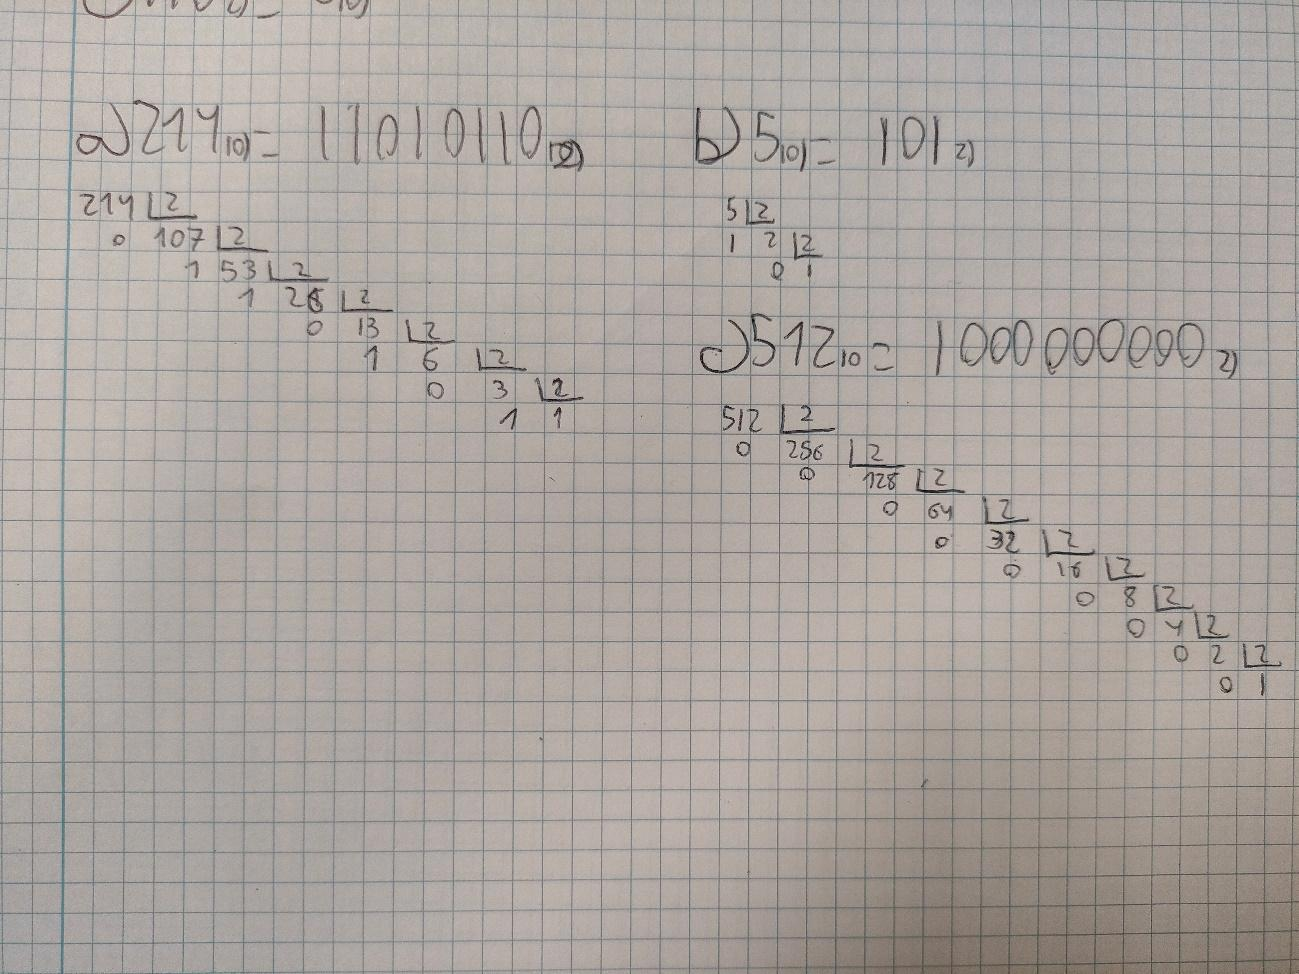 a) 214 10) = 11010110 2)
214 | 2
0 107 | 2
1 53 | 2
1 26 | 2
0 13 | 2
1 6 | 2
0 3 | 2
1 1
b) 5 10) = 101 2)
5 | 2
1 2 | 2
0 1
c) 512 10 = 1000000000 2)
512 | 2
0 256 | 2
0 128 | 2
0 64 | 2
0 32 | 2
0 16 | 2
0 8 | 2
0 4 | 2
0 2 | 2
0 1